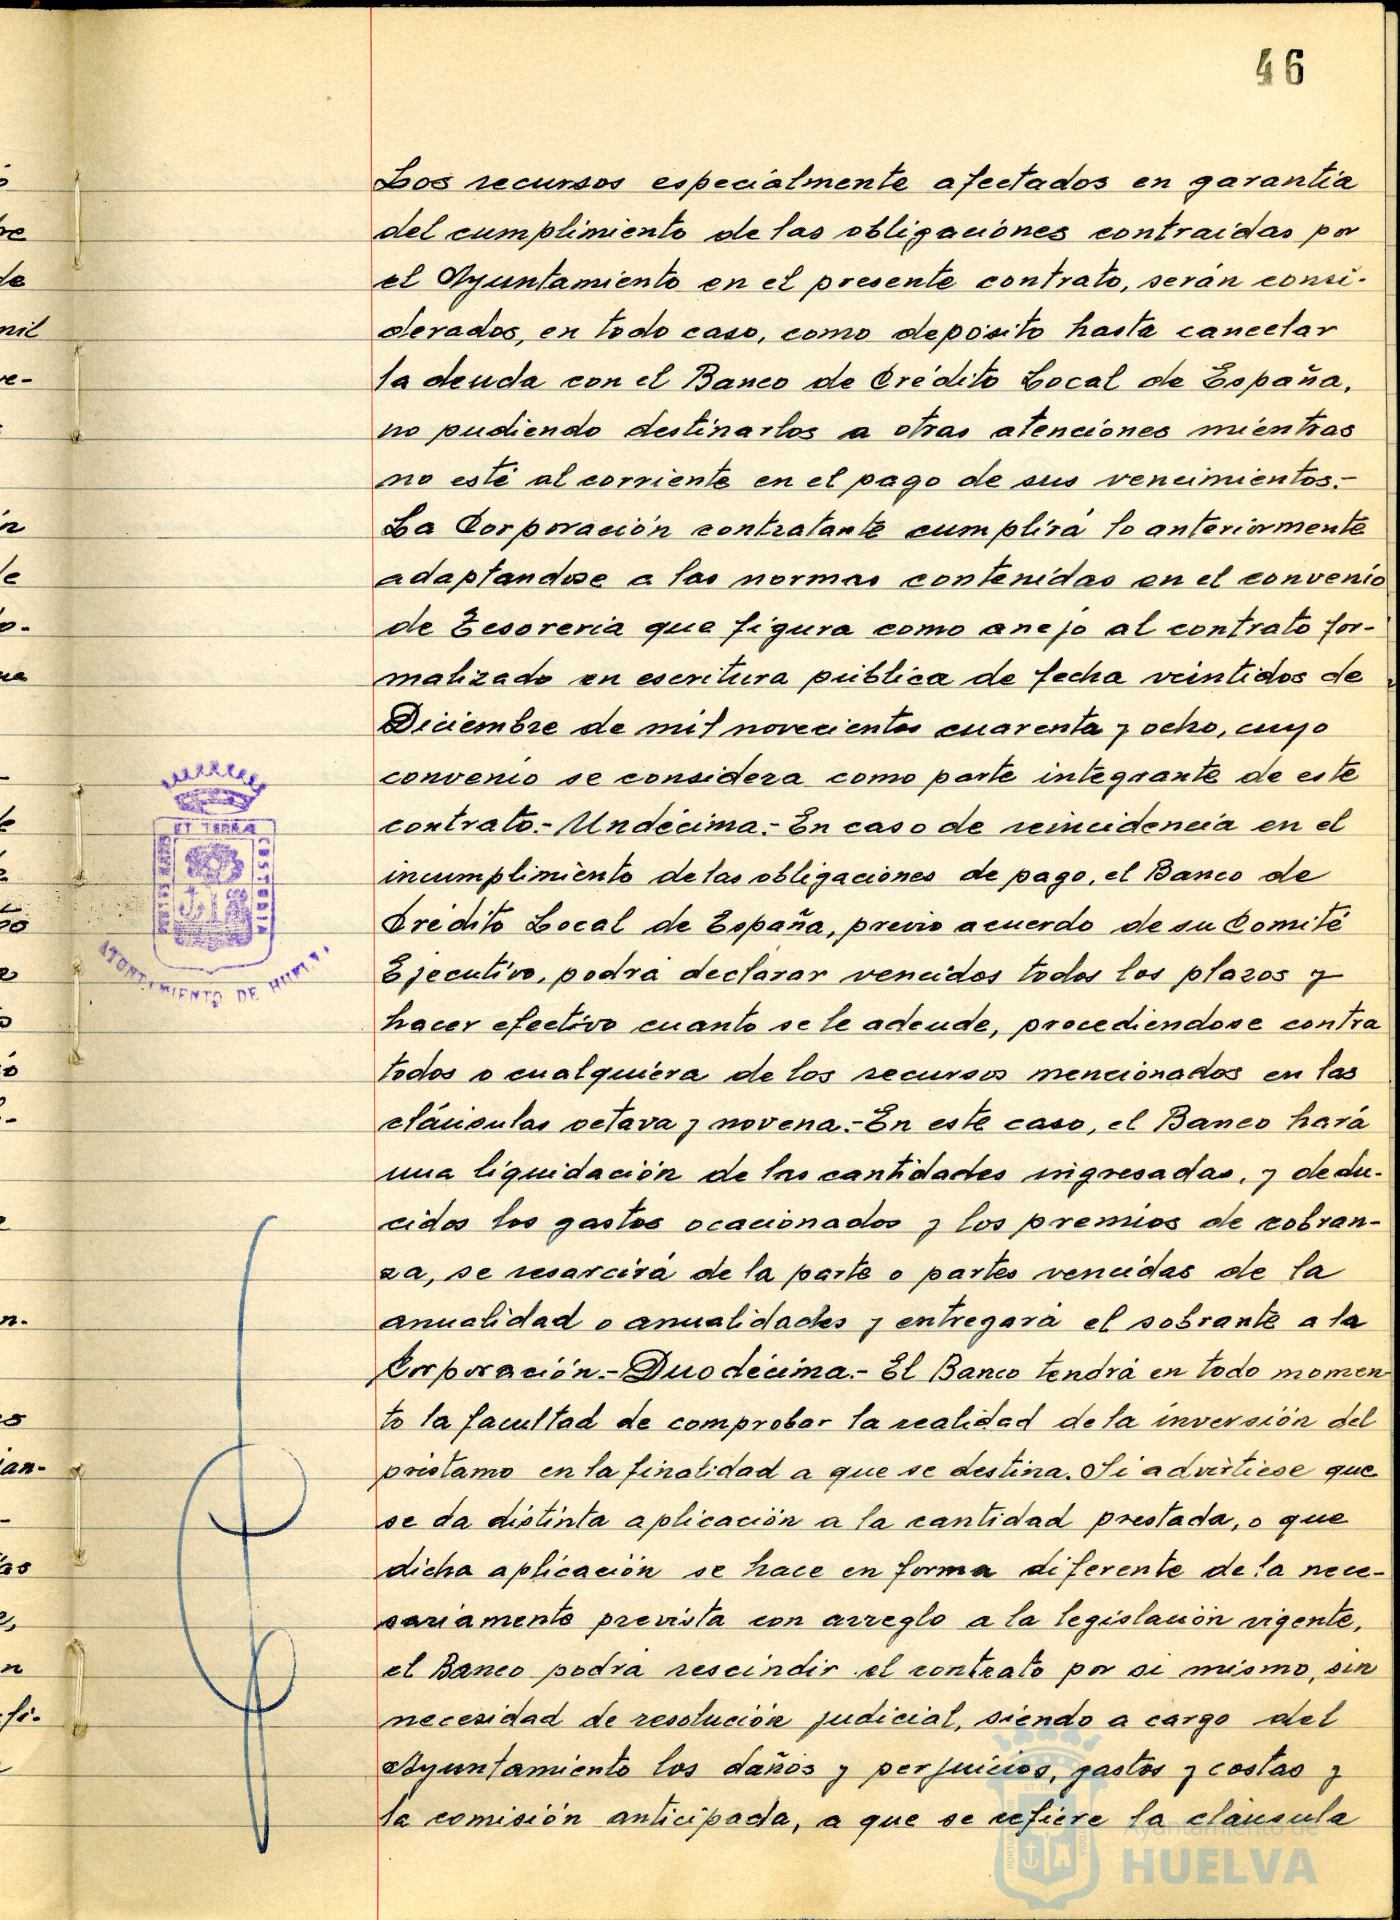 46
Los recursos especialmente afectados en garantía
del cumplimiento de las obligaciones contraidas por
el Ayuntamiento en el presente contrato, serán consi-
derados, en todo caso, como depósito hasta cancelar
la deuda con el Banco de Crédito Local de España,
no pudiendo destinarlos a otras atenciones mientras
no esté al corriente en el pago de sus vencimientos.-
La Corporación contratante cumplirá lo anteriormente
adaptandose a las normas contenidas en el convenio
de Tesoreria que figura como anejo al contrato for-
malizado en escritura pública de fecha veintidos de
Diciembre de mil novecientos cuarenta y ocho, cuyo
convenio se considera como parte integrante de este
contrato.- Undécima.- En caso de reincidencia en el
incumplimiento de las obligaciones de pago, el Banco de
Crédito Local de España, previo acuerdo de su Comité
Ejecutivo, podrá declarar vencidos todos los plazos y
hacer efectivo cuanto se le adeude, procediendose contra
todos o cualquiera de los recursos mencionados en las
cláusulas octava y novena.- En este caso, el Banco hará
una liquidación de las cantidades ingresadas, y dedu-
cidos los gastos ocacionados y los premios de cobran-
za, se resarcirá de la parte o partes vencidas de la
anualidad o anualidades y entregará el sobrante a la
Corporación.- Duodécima.- El Banco tendrá en todo momen
to la facultad de comprobar la realidad de la inversión del
préstamo en la finalidad a que se destina. Si advirtiese que
se da distinta aplicación a la cantidad prestada, o que
dicha aplicación se hace en forma diferente de la nece-
sariamente prevista con arreglo a la legislación vigente,
el Banco podrá rescindir el contrato por si mismo, sin
necesidad de resolución judicial, siendo a cargo del
Ayuntamiento los daños y perjuicios, gastos y costas y
la comisión anticipada, a que se refiere la cláusula
PORTUS MARIS ET TERRAE CUSTODIA
AYUNTAMIENTO DE HUELVA
Ayuntamiento de
HUELVA